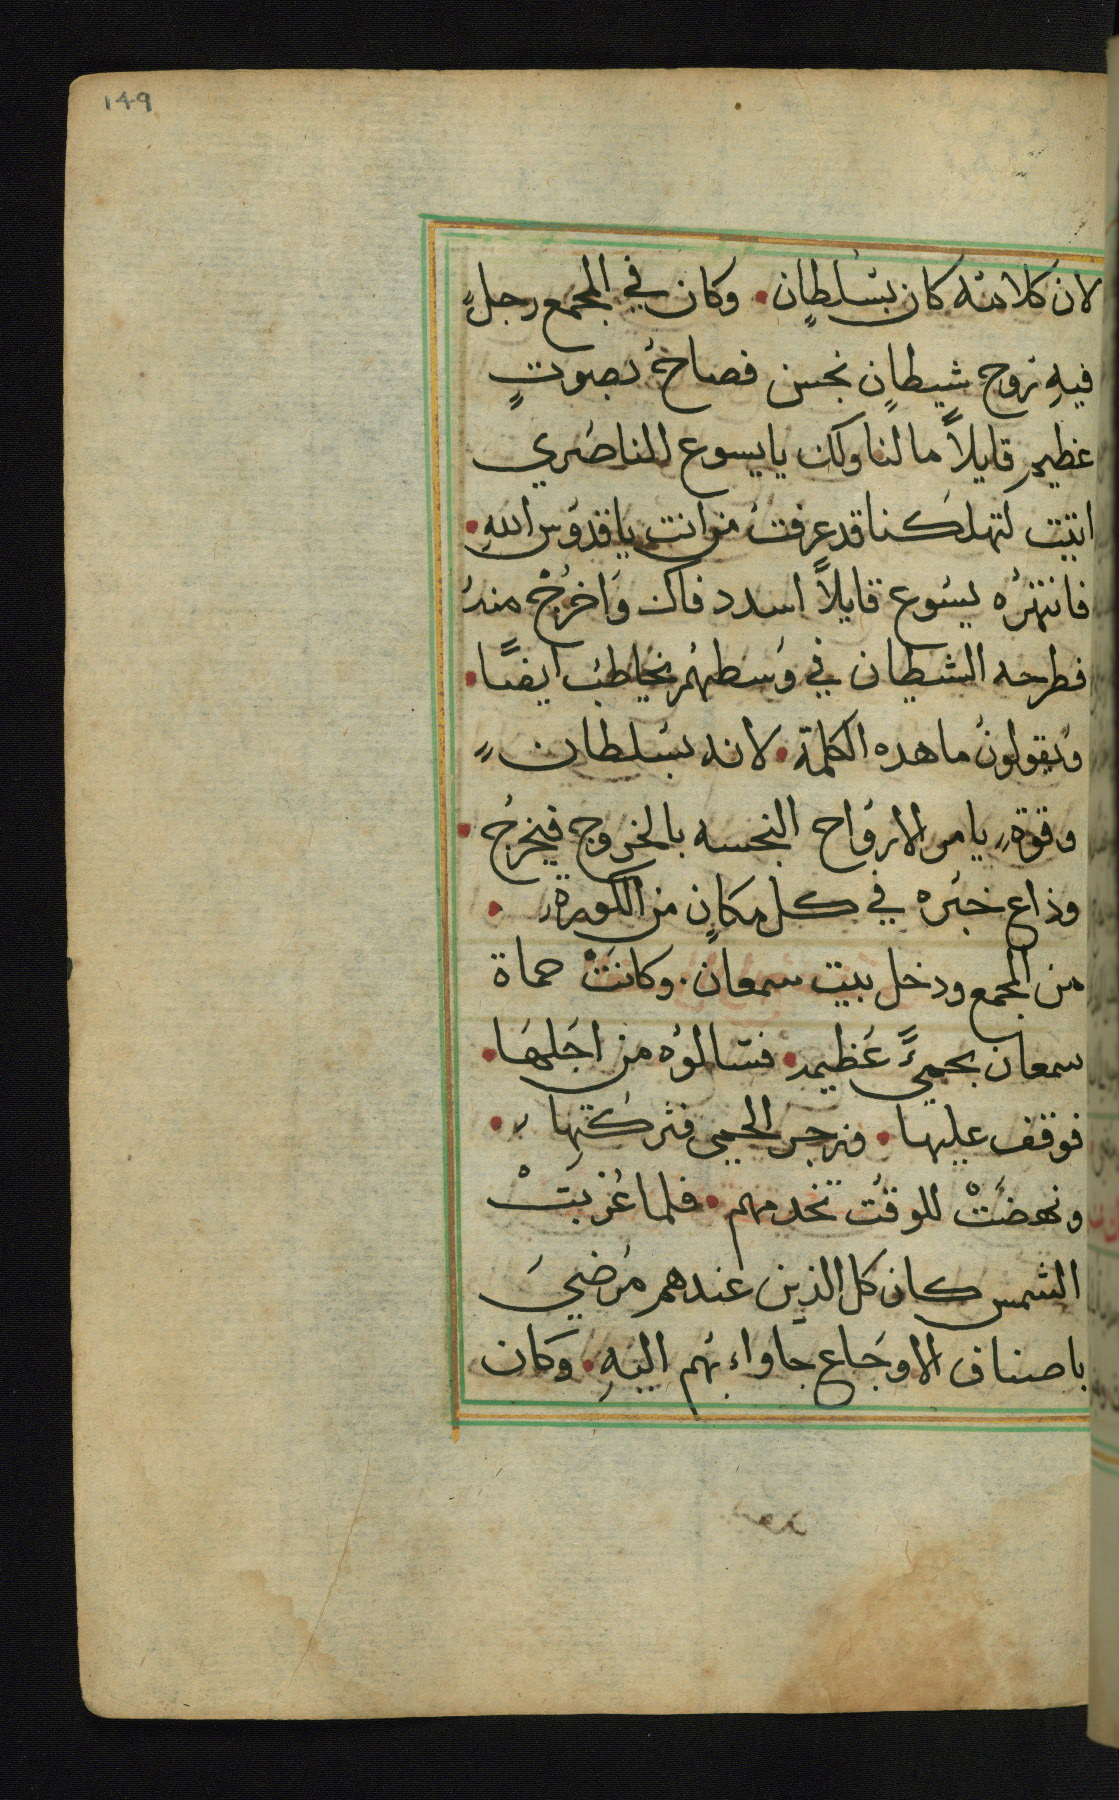 ١٤٩
لان كلامه كان بسلطان • وكان في المجمع رجل
فيهِ روح شيطان نجس فصاح بصوتٍ
عظيم قايلاً ما لنا ولك يا يسوع الناصري
اتيت لتهلكنا قد عرفت من انت يا قدوس اللهِ •
فانتهره يسوع قايلاً اسدد فاك وَاخرُجْ منهُ
فطرحه الشيطان في وَسطهُم يخاطب ايضًا •
وَيقولونُ ما هده الكلمة • لانه بسلطان
وقوة يامر الارواح النجسه بالخروج فيخرج •
وذاع خبره في كل مكانٍ من الكورة •
من المجمع ودخل بيت سمعان • وكانتْ حماة
سمعان بحميًّ عَظيم • فسالوُه من اجَلهَا •
فوقف عليها • وزجر الحمى فتركتها •
ونهضَتْ للوقتُ تخدمهم • فلما غربتْ
الشمس كان كل الذين عندهم مَرضيَ
باصناف الاوجَاع جاواء بهُم اليهِ • وَكان